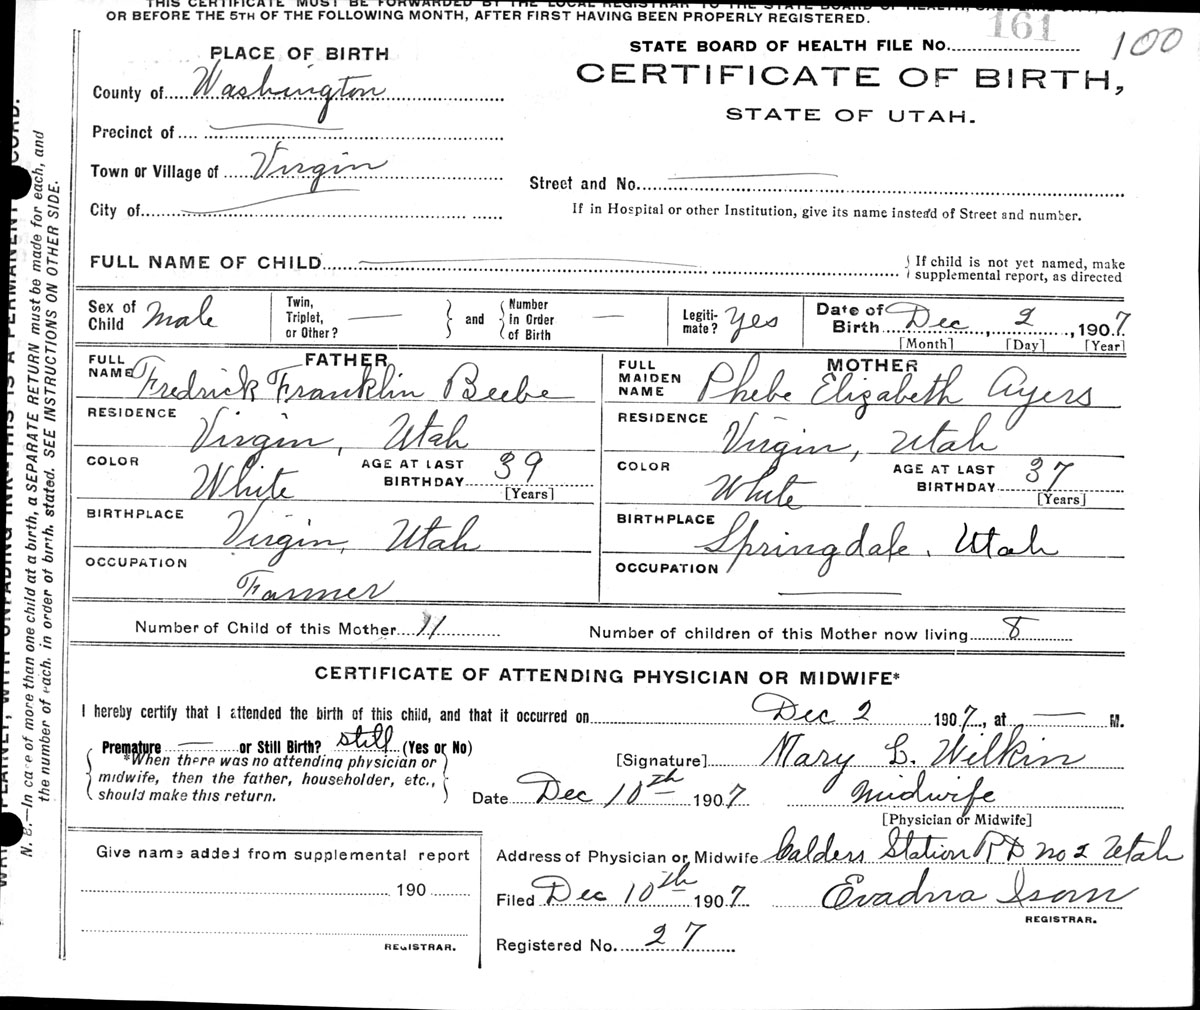 THIS CERTIFICATE MUST BE FORWARDED BY THE LOCAL REGISTRAR TO THE STATE BOARD OF HEALTH,
OR BEFORE THE 5TH OF THE FOLLOWING MONTH, AFTER FIRST HAVING BEEN PROPERLY REGISTERED.
161
100
STATE BOARD OF HEALTH FILE No.
CERTIFICATE OF BIRTH,
STATE OF UTAH.
PLACE OF BIRTH
County of Washington
Precinct of
Town or Village of Virgin
City of
Street and No.
If in Hospital or other Institution, give its name instead of Street and number.
FULL NAME OF CHILD
If child is not yet named, make
supplemental report, as directed
Sex of Child Male
Twin, Triplet, or Other? —
and
Number in Order of Birth —
Legiti-mate? Yes
Date of Birth Dec, 2, 1907
[Month] [Day] [Year]
FATHER
FULL NAME Fredrick Franklin Beebe
RESIDENCE
Virgin, Utah
COLOR White
AGE AT LAST BIRTHDAY 39
[Years]
BIRTHPLACE
Virgin, Utah
OCCUPATION
Farmer
MOTHER
FULL MAIDEN NAME Phebe Elizabeth Ayers
RESIDENCE
Virgin, Utah
COLOR White
AGE AT LAST BIRTHDAY 37
[Years]
BIRTHPLACE
Springdale, Utah
OCCUPATION —
Number of Child of this Mother 11
Number of children of this Mother now living 8
CERTIFICATE OF ATTENDING PHYSICIAN OR MIDWIFE*
I hereby certify that I attended the birth of this child, and that it occurred on Dec 2 1907, at — M.
Premature — or Still Birth? still (Yes or No)
*When there was no attending physician or
midwife, then the father, householder, etc.,
should make this return.
[Signature] Mary L. Wilkin
Date Dec 10th 1907 Midwife
[Physician or Midwife]
Give name added from supplemental report
190
REGISTRAR.
Address of Physician or Midwife Calders Station RD no 2 Utah
Filed Dec 10th 1907 Evadna Isom
REGISTRAR.
Registered No. 27
WRITE PLAINLY, WITH UNFADING INK—THIS IS A PERMANENT RECORD.
N. B.—In case of more than one child at a birth, a SEPARATE RETURN must be made for each, and
the number of each, in order of birth, stated. SEE INSTRUCTIONS ON OTHER SIDE.